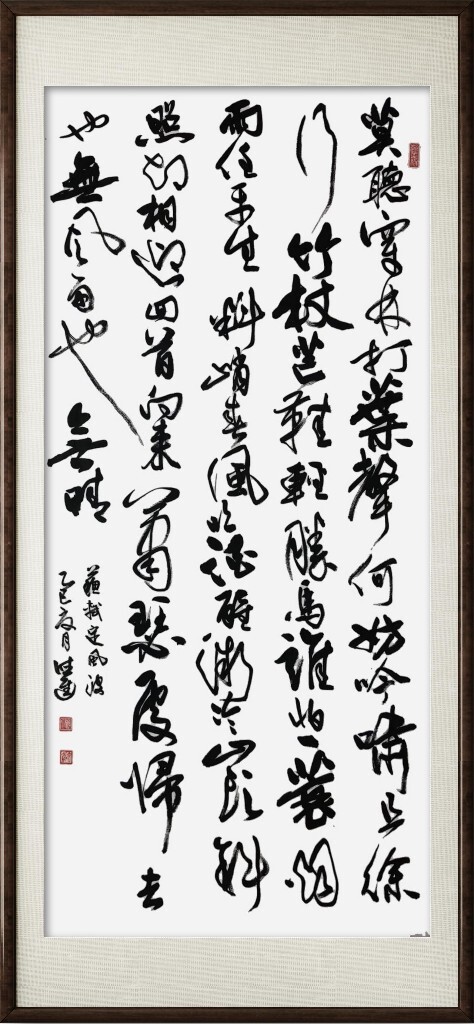 莫聽穿林打葉聲何妨吟嘯且徐
行竹杖芒鞋輕勝馬誰怕一蓑烟
雨任平生料峭春風吹酒醒微冷山頭斜
照却相迎回首向来蕭瑟處歸去
也無風雨也無晴
蘇軾定風波
乙巳夏月